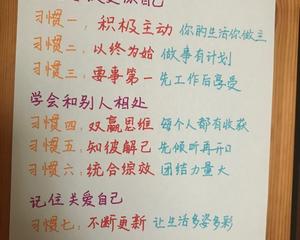 习惯一，积极主动 你的生活你做主
习惯二，以终为始 做事有计划
习惯三，要事第一 先工作后享受
学会和别人相处
习惯四，双赢思维 每个人都有收获
习惯五，知彼解己 先倾听再开口
习惯六，统合综效 团结力量大
记住关爱自己
习惯七：不断更新 让生活多姿多彩